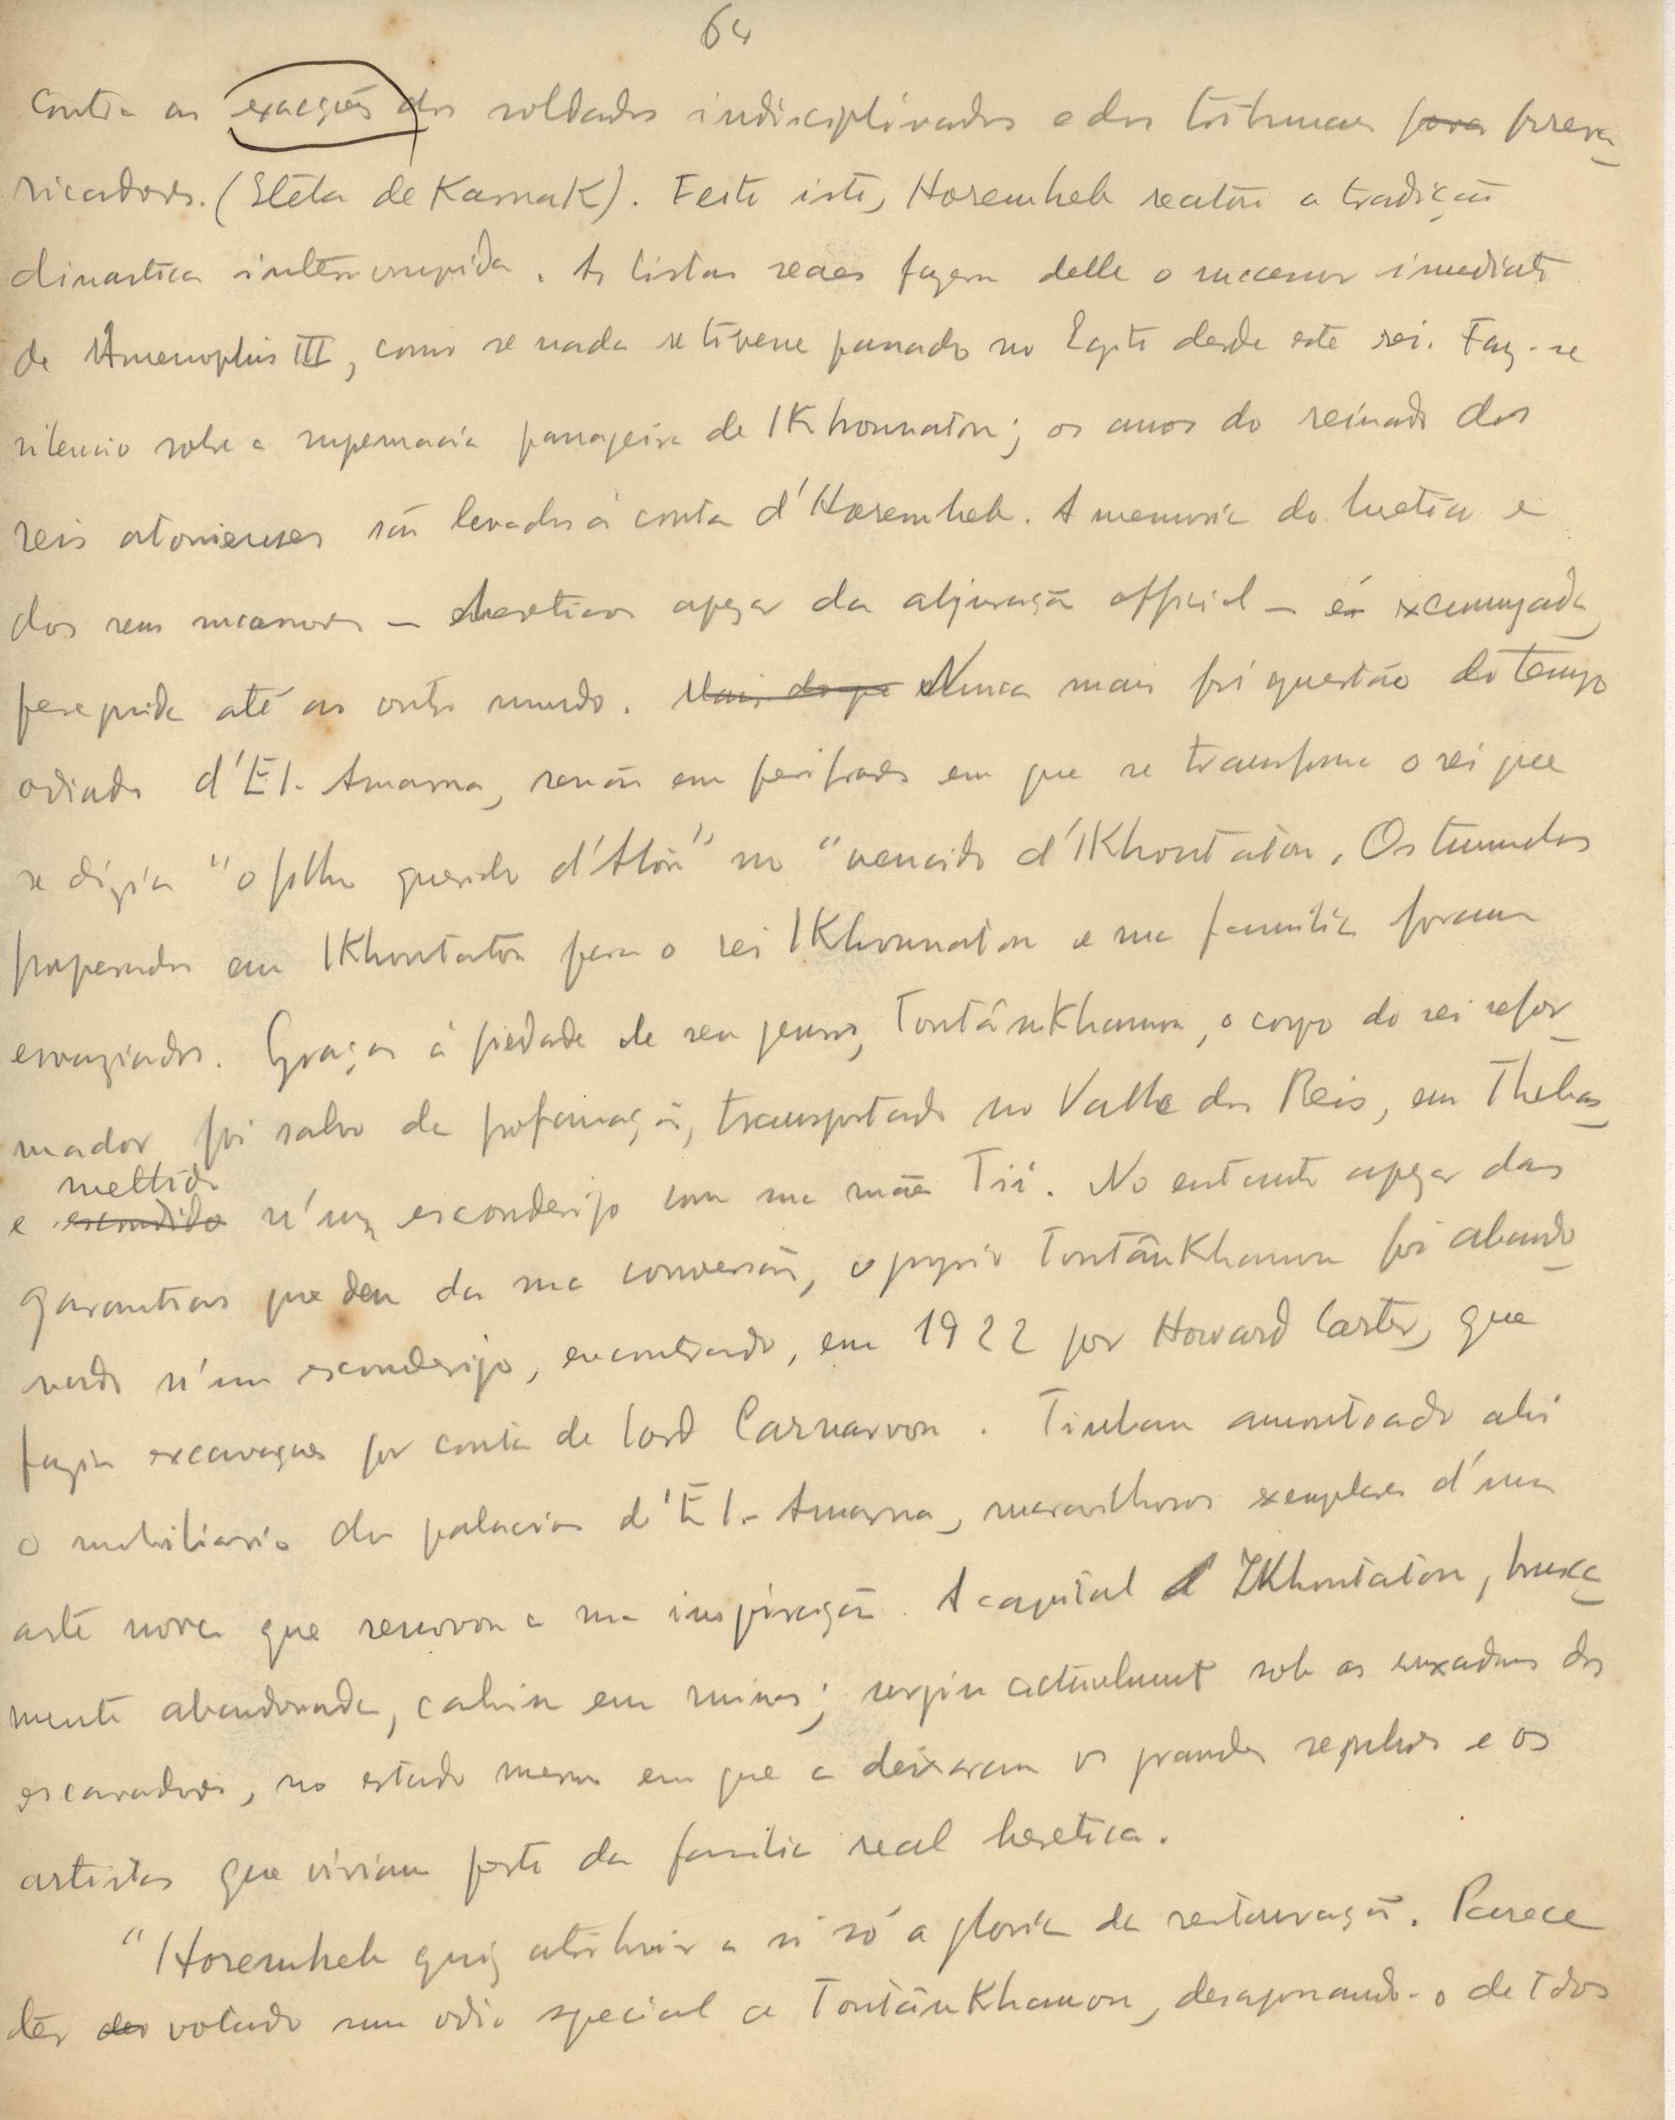 64
contra as exacções dos soldados indisciplinados e dos tribunaes para preva
ricadores. (Stéla de Karnak). Feito isto, Horemheb reatou a tradição
dinastica interrompida. As listas reaes fazem delle o sucessor imediato
de Amenophis III, como se nada se tivesse passado no Egito desde este rei. Faz-se
silencio sobre a supremacia passageira de IKhounaton; os anos do reinado dos
reis atonienses são levados á conta d'Horemheb. A memoria do heretico e
dos seus sucessores – hereticos apezar da abjuração official – é excomungada,
perseguida até ao outro mundo. Mais do que Nunca mais foi questão do tempo
odiado d'El-Amarna, senão em perifrases em que se transforma o rei que
se dizia "o filho querido d'Aton" no "vencido d'IKhoutaton. Os tumulos
preparados em IKhoutaton para o rei IKhounaton e sua familia foram
esvaziados. Graças á piedade de seu genro, Toutânkhamon, o corpo do rei refor
mador foi salvo da profanação, transportado no Valle dos Reis, em Thebas
mettido
e escondido n'um esconderijo com sua mãe Tii. No entanto apezar das
garantias que deu da sua conversão, o proprio ToutânKhamon foi abando
nado n'um esconderijo, encontrado, em 1922 por Howard Carter, que
fazia excavações por conta de lord Carnarvon. Tinham amontoado ahi
o mobiliario dos palacios d'El-Amarna, maravilhosos exemplares d'uma
arte nova que renovou a sua inspiração. A capital d'IKhoutaton, brusca
mente abandonada, cahiu em ruinas; surgiu actualmente sob as enxadas dos
escavadores, no estado mesmo em que a deixaram os grandes senhores e os
artistas que viviam perto da familia real heretica.
"Horemheb quiz atribuir a si só a gloria da restauração. Parece
têr votado um odio special a ToutânKhamon, desapossando-o de todos